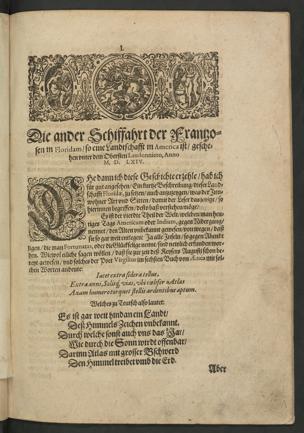 I.
Die ander Schiffahrt der Frantzo-
sen in Floridam/ so eine Landtschafft in America ist/ gesche-
hen vnter dem Obersten Laudonniero, Anno
M. D. LXIV.
EHe dann ich diese Geschichte erzehle/ hab ich
für gut angesehen/ Ein kurtze Beschreibung dieser Land-
schafft Floridæ, zu setzen/ auch anzuzeigen/ was der Jnn-
wohner Art vnd Sitten/ damit der Leser dasjenige/ so
hierinnen begriffen/ desto baß verstehen möge.
Es ist der vierdte Theil der Welt/ welchen man heu-
tiges Tags Americam oder Indiam, gegen Nidergang/
nennet/ den Alten vnbekannt gewesen/ von wegen/ daß
sie so gar weit
ligen/ die man Fortunatas, oder die Glückselige nennt/ sind
Wiewol etliche sagen wöllen/ daß sie zur zeit deß Keysers Augusti schon be-
reyt gewesen/ vnd solches der Poet Virgilius im sechsten Buch von Ænea mit sol-
chen Worten andeute:
Iacet extra sidera tellus,
Extra anni, Solisq; vias, vbi cœlifer Atlas
Axem humero torquet stellis ardentibus aptum.
Welches zu Teutsch also lautet:
Es ist gar weit hindan ein Landt/
Deß Himmels Zeichen vnbekannt.
Durch welche sonst auch vns das Jar/
Wie durch die Sonn wirdt offenbar/
Darinn Atlas mit grosser Bschwerd
Den Himmel treibet vmb die Erd.
Aber